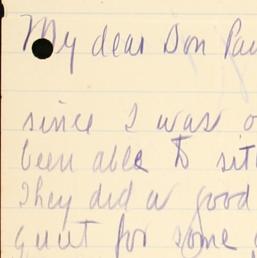 My dear Don Pau
since I was o
been able to sit
They did a good
quiet for some